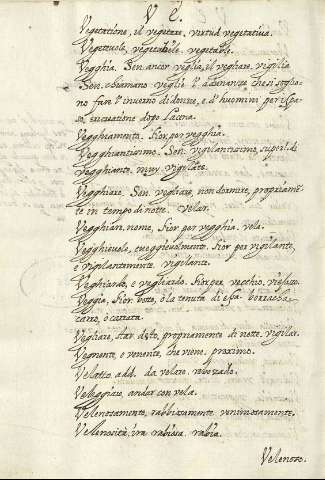 V E.
Vegetatione, il vegetare, virtud vegetativa.
Vegetevole, vegetabile. vegetable.
Vegghia. Sen. ancor veglia, il vegliare, vigilia
Sen. chiamano veglie l'adunanze che si soglio=
no far l'inverno di donne, e d'huomini per ispa=
so, recreatione dopo la cena.
Vegghiamento. Fior. per vegghia.
Vegghiantissimo. Sen. vigilantissimo, superl. di
vegghiante, muy vigilante.
Vegghiare, Sen. vegliare, non dormire, propriamẽ=
te in tempo di notte. velar.
Vegghiare, nome, Fior. per vegghia. vela.
Vegghievole, e vegghievolmente. Fior. per vigilante,
e vigilantemente. vigilante.
Vegliardo, e vegliardo. Fior. per vecchio,
Veggia, Fior. botte, ò la tenuta di essa
carro, ò carrata.
Vegliare, star desto, propriamente di notte. vigilar.
Vegnente, e venente, che viene. proximo.
Velato. add. da velare. rebozado.
Veleggiare, andar con vela.
Velenosamente, rabbiosamente. venimosamente.
Velenosità, ira rabiosa. rabia.
Velenoso.